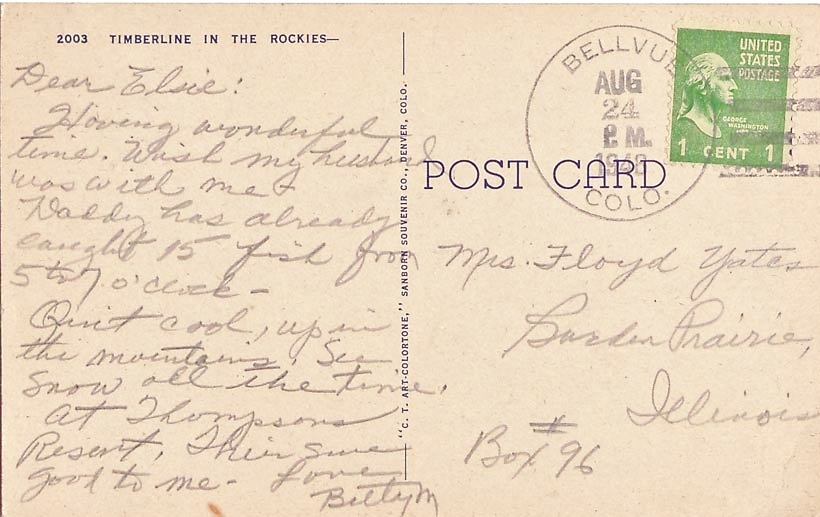 2003 TIMBERLINE IN THE ROCKIES—
Dear Elsie:
Having wonderful
time. Wish my husband
was with me -
Daddy has already
caught 15 fish from
5 to 7 o'clock -
Quit cool, up in
the mountains. See
snow all the time.
at Thompsons
Resort, Their sure
good to me - Love
Betty M
"C. T. ART-COLORTONE," SANBORN SOUVENIR CO., DENVER, COLO.
POST CARD
BELLVUE
AUG
24
P.M.
COLO.
UNITED
STATES
POSTAGE
GEORGE
WASHINGTON
1 CENT 1
Mrs. Floyd Yates
Garden Prairie,
Illinois
Box # 96